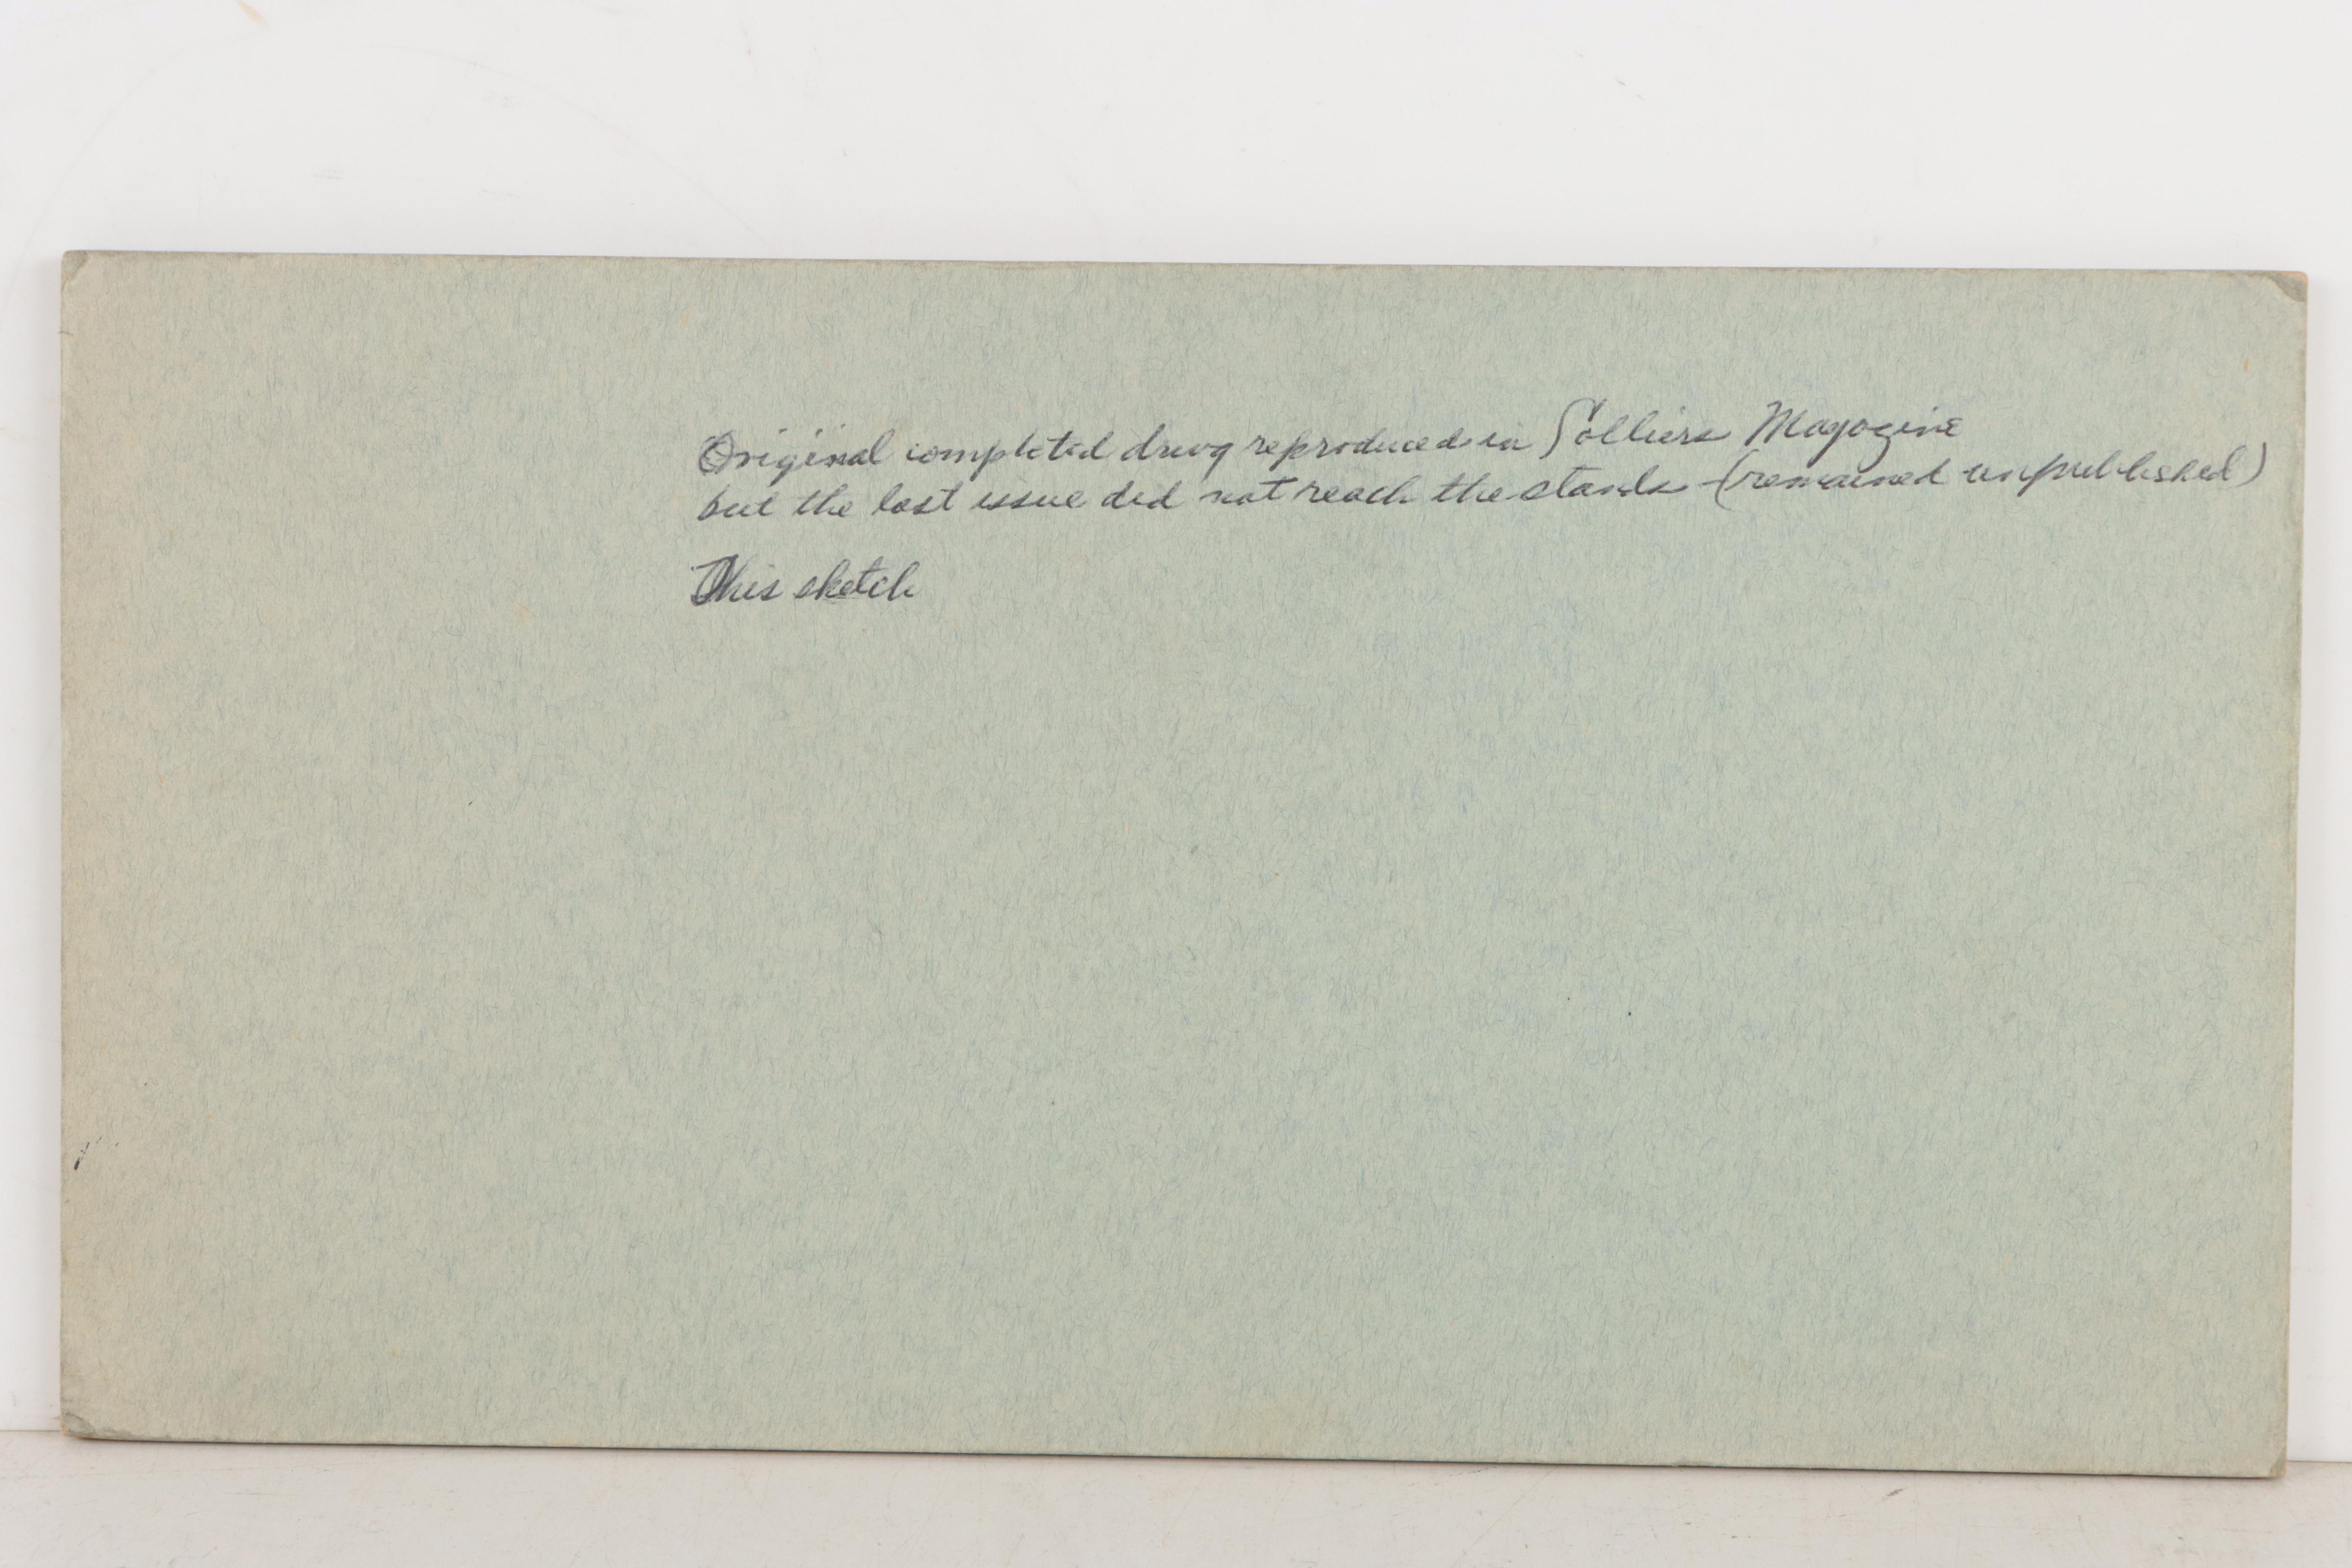 Original completed drwg reproduced in Colliers Magazine
but the last issue did not reach the stands - (remained unpublished)
This sketch